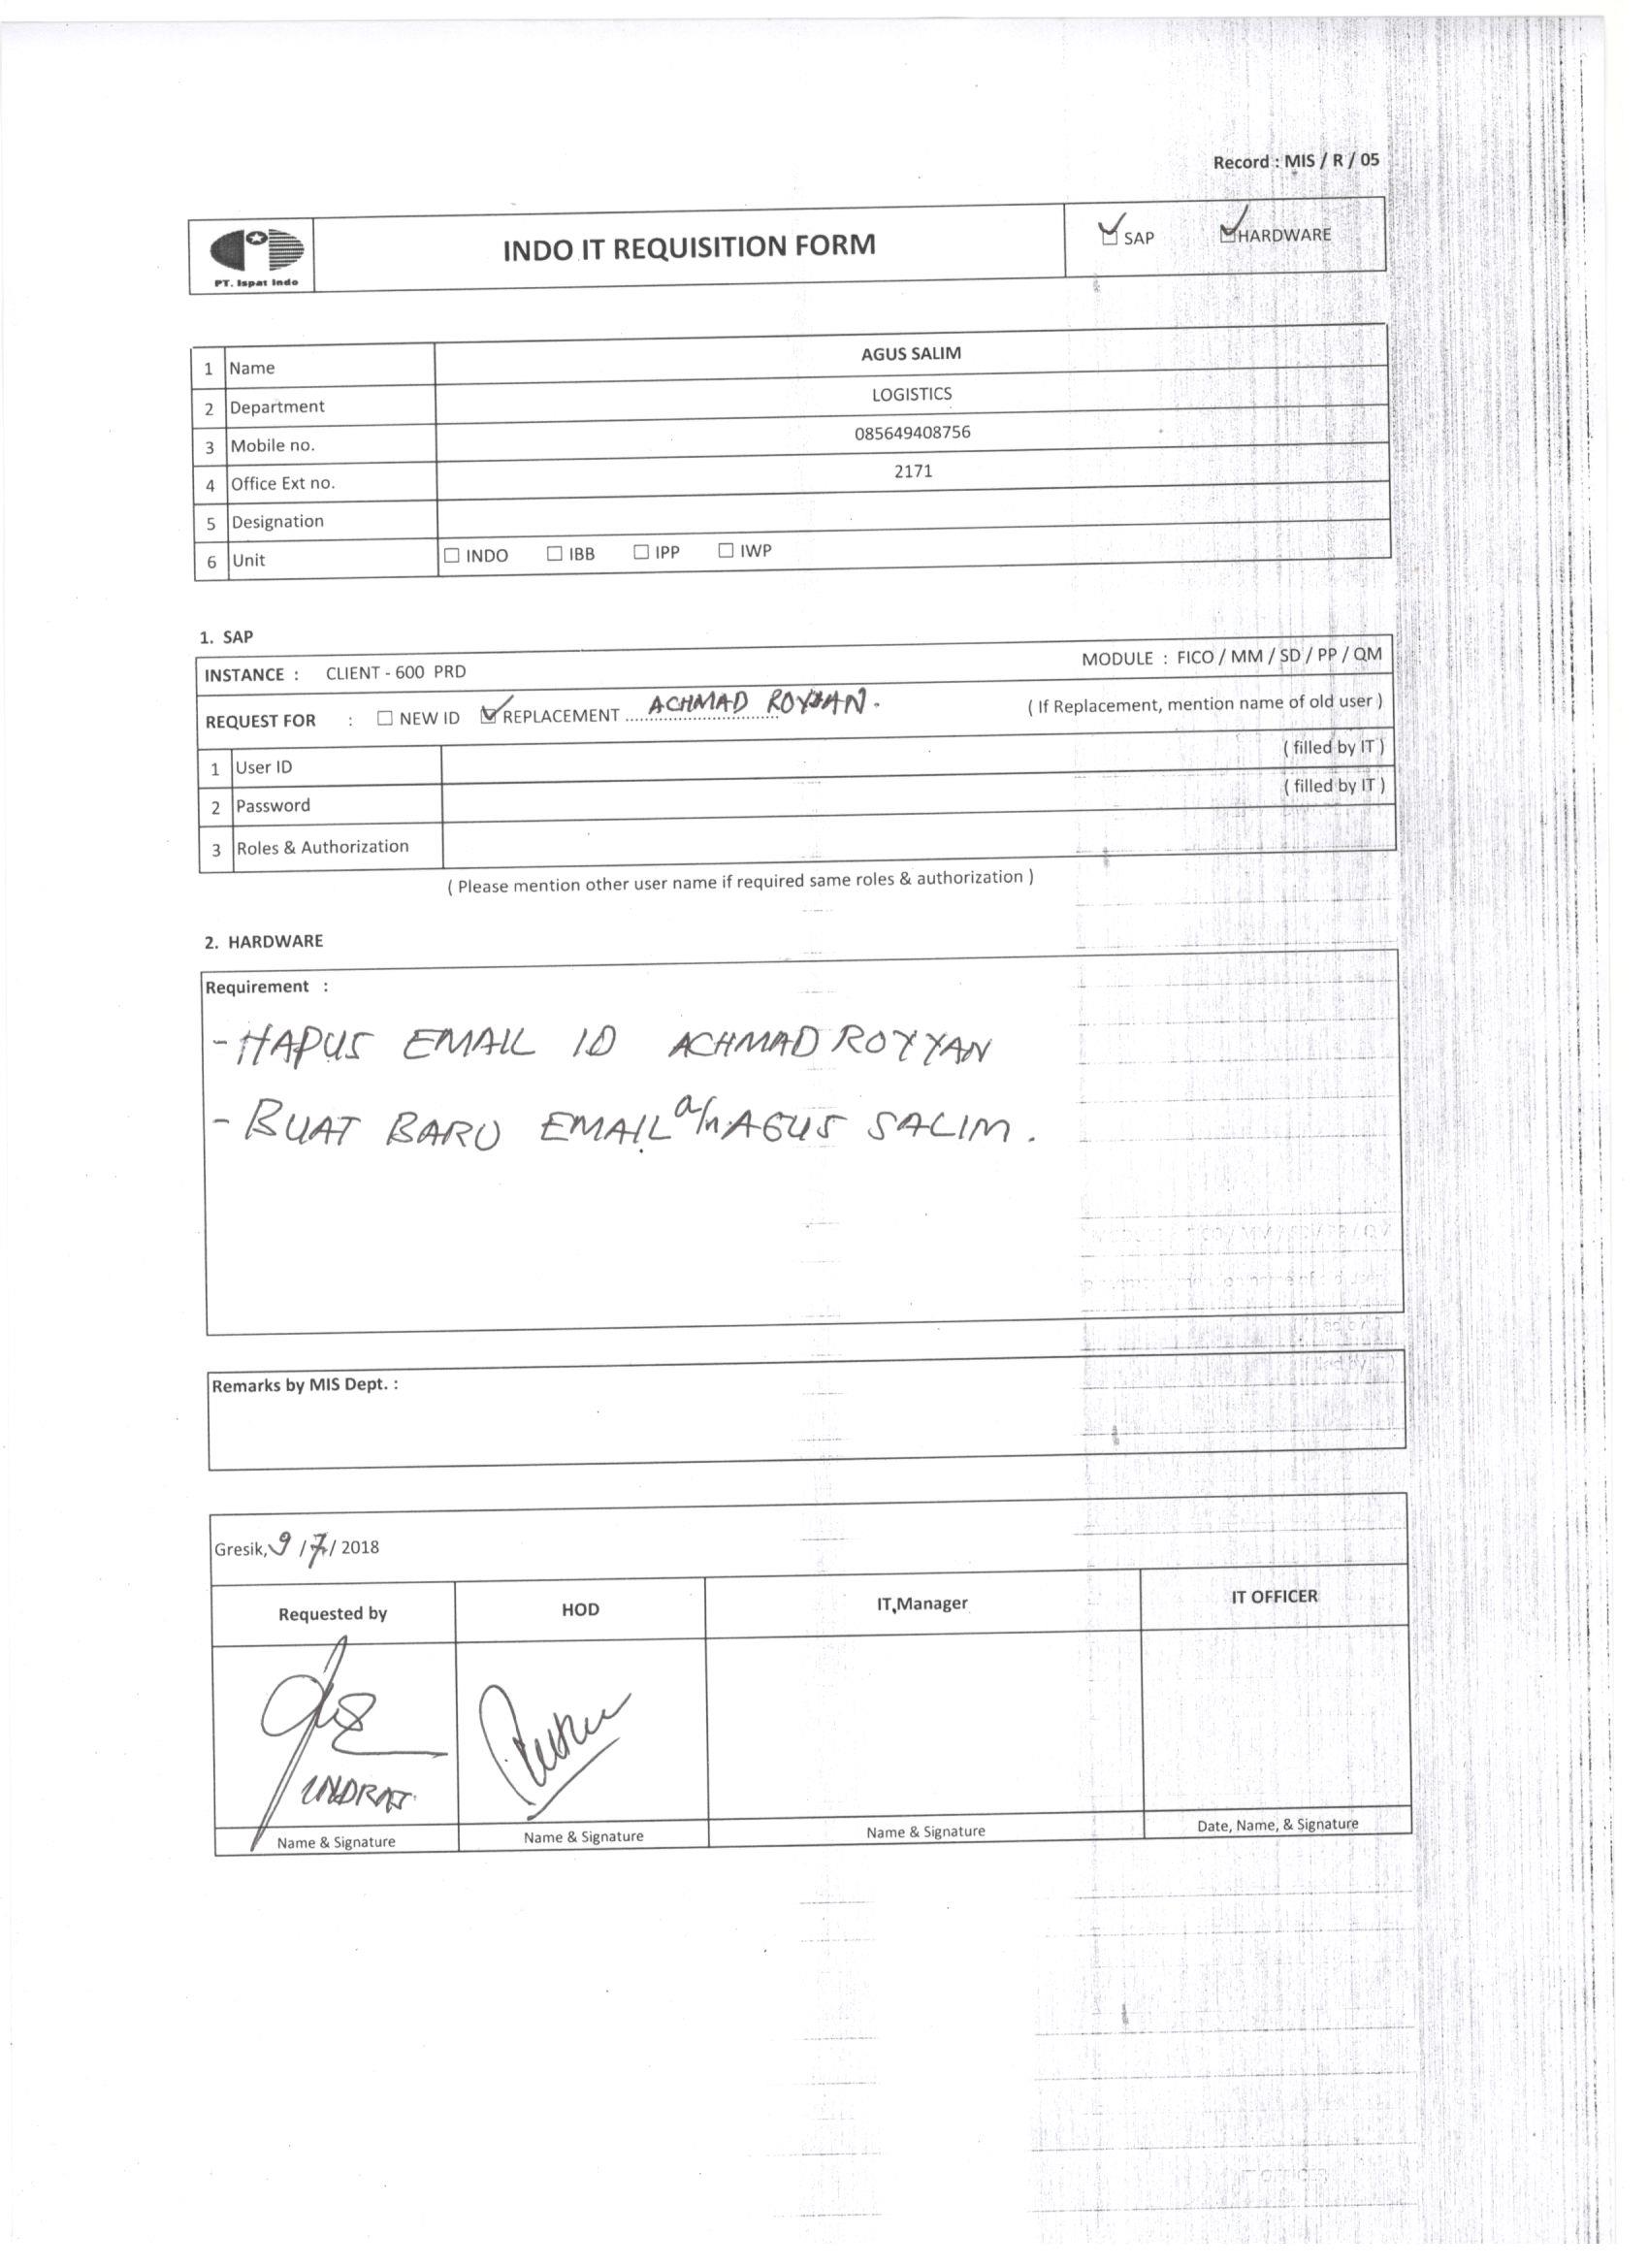 Record : MIS / R / 05
PT. Ispat Indo
INDO IT REQUISITION FORM
SAP HARDWARE
1 Name AGUS SALIM
2 Department LOGISTICS
3 Mobile no. 085649408756
4 Office Ext no. 2171
5 Designation
6 Unit INDO IBB IPP IWP
1. SAP
INSTANCE : CLIENT - 600 PRD MODULE : FICO / MM / SD / PP / QM
REQUEST FOR : NEW ID REPLACEMENT ACHMAD ROYYAN. ( If Replacement, mention name of old user )
1 User ID ( filled by IT )
2 Password ( filled by IT )
3 Roles & Authorization
( Please mention other user name if required same roles & authorization )
2. HARDWARE
Requirement :
- HAPUS EMAIL ID ACHMAD ROYYAN
- BUAT BARU EMAIL a/n AGUS SALIM.
Remarks by MIS Dept. :
Gresik, 9 / 7 / 2018
Requested by HOD IT Manager IT OFFICER
Name & Signature Name & Signature Name & Signature Date, Name, & Signature